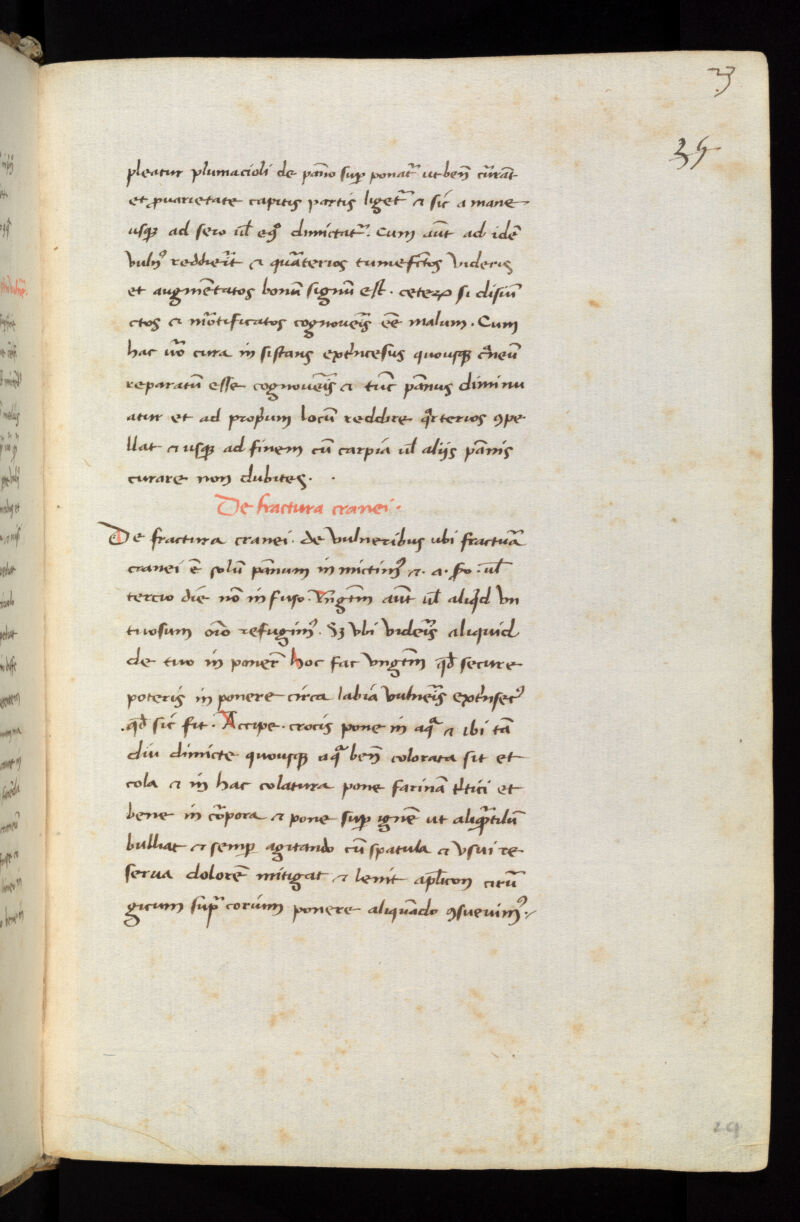 3
35
pleatur plumacioli de pãno sup ponatr̃ ut benẽ cũrant̃
et ꝓ uarietate capitis partis liget̃ & sic a mane
usqꝫ ad sero ul̃ eqꝫ dimictat̃. Cum aũt ad idẽ
uuln⁹ reddier̃it & qua̾terios tumefc̃tos uideris
et augmẽtatos bonũ signũ est. ceteꝝ si disiũ
ctos & mortificatos cognoueris ẽe malum. Cum
hac ũo cura in sistans quousqꝫ c̃neũ
reparatũ esse cognoueris & tũc pãnus diminu
atur et ad propriũm locũ reddire ꝯpe
llat & usqꝫ ad finem cũ carpia ul̃ aliis pãnis
curare non dubites.
De fractura cranei.
De fractura cranei. de vulneribus ubi fractũa
cranei ẽ solũ pãnum in mictim⁹ ul̃
tercio die nõ in fuso. Vngtm̃ aũt ul̃ aliqd̃ vn
tuosum oĩo refugim⁹. Sꝫ vbi uideris aliquid
de tuo in ponere hoc fac vngtm̃ qđ secure
poteris in ponere circa labia uulneris
qđ sic fit. Accipe. crocis pone in aqᵃ & ibi tã
diu dimicte quousqꝫ aqᵃ benẽ colorata sit et
cola & in hac colatura pone farinã tͥtici et
bene in corpora & pone sup ignẽ ut aliqᵃntulũ
bulliat & semp agitando cũ spatula & vsui re
serua dolorẽ mitigat & lenit apl̃icon cirũ
gicum supᵃ corium ponere aliquãdo ꝯsueuim⁹.
29